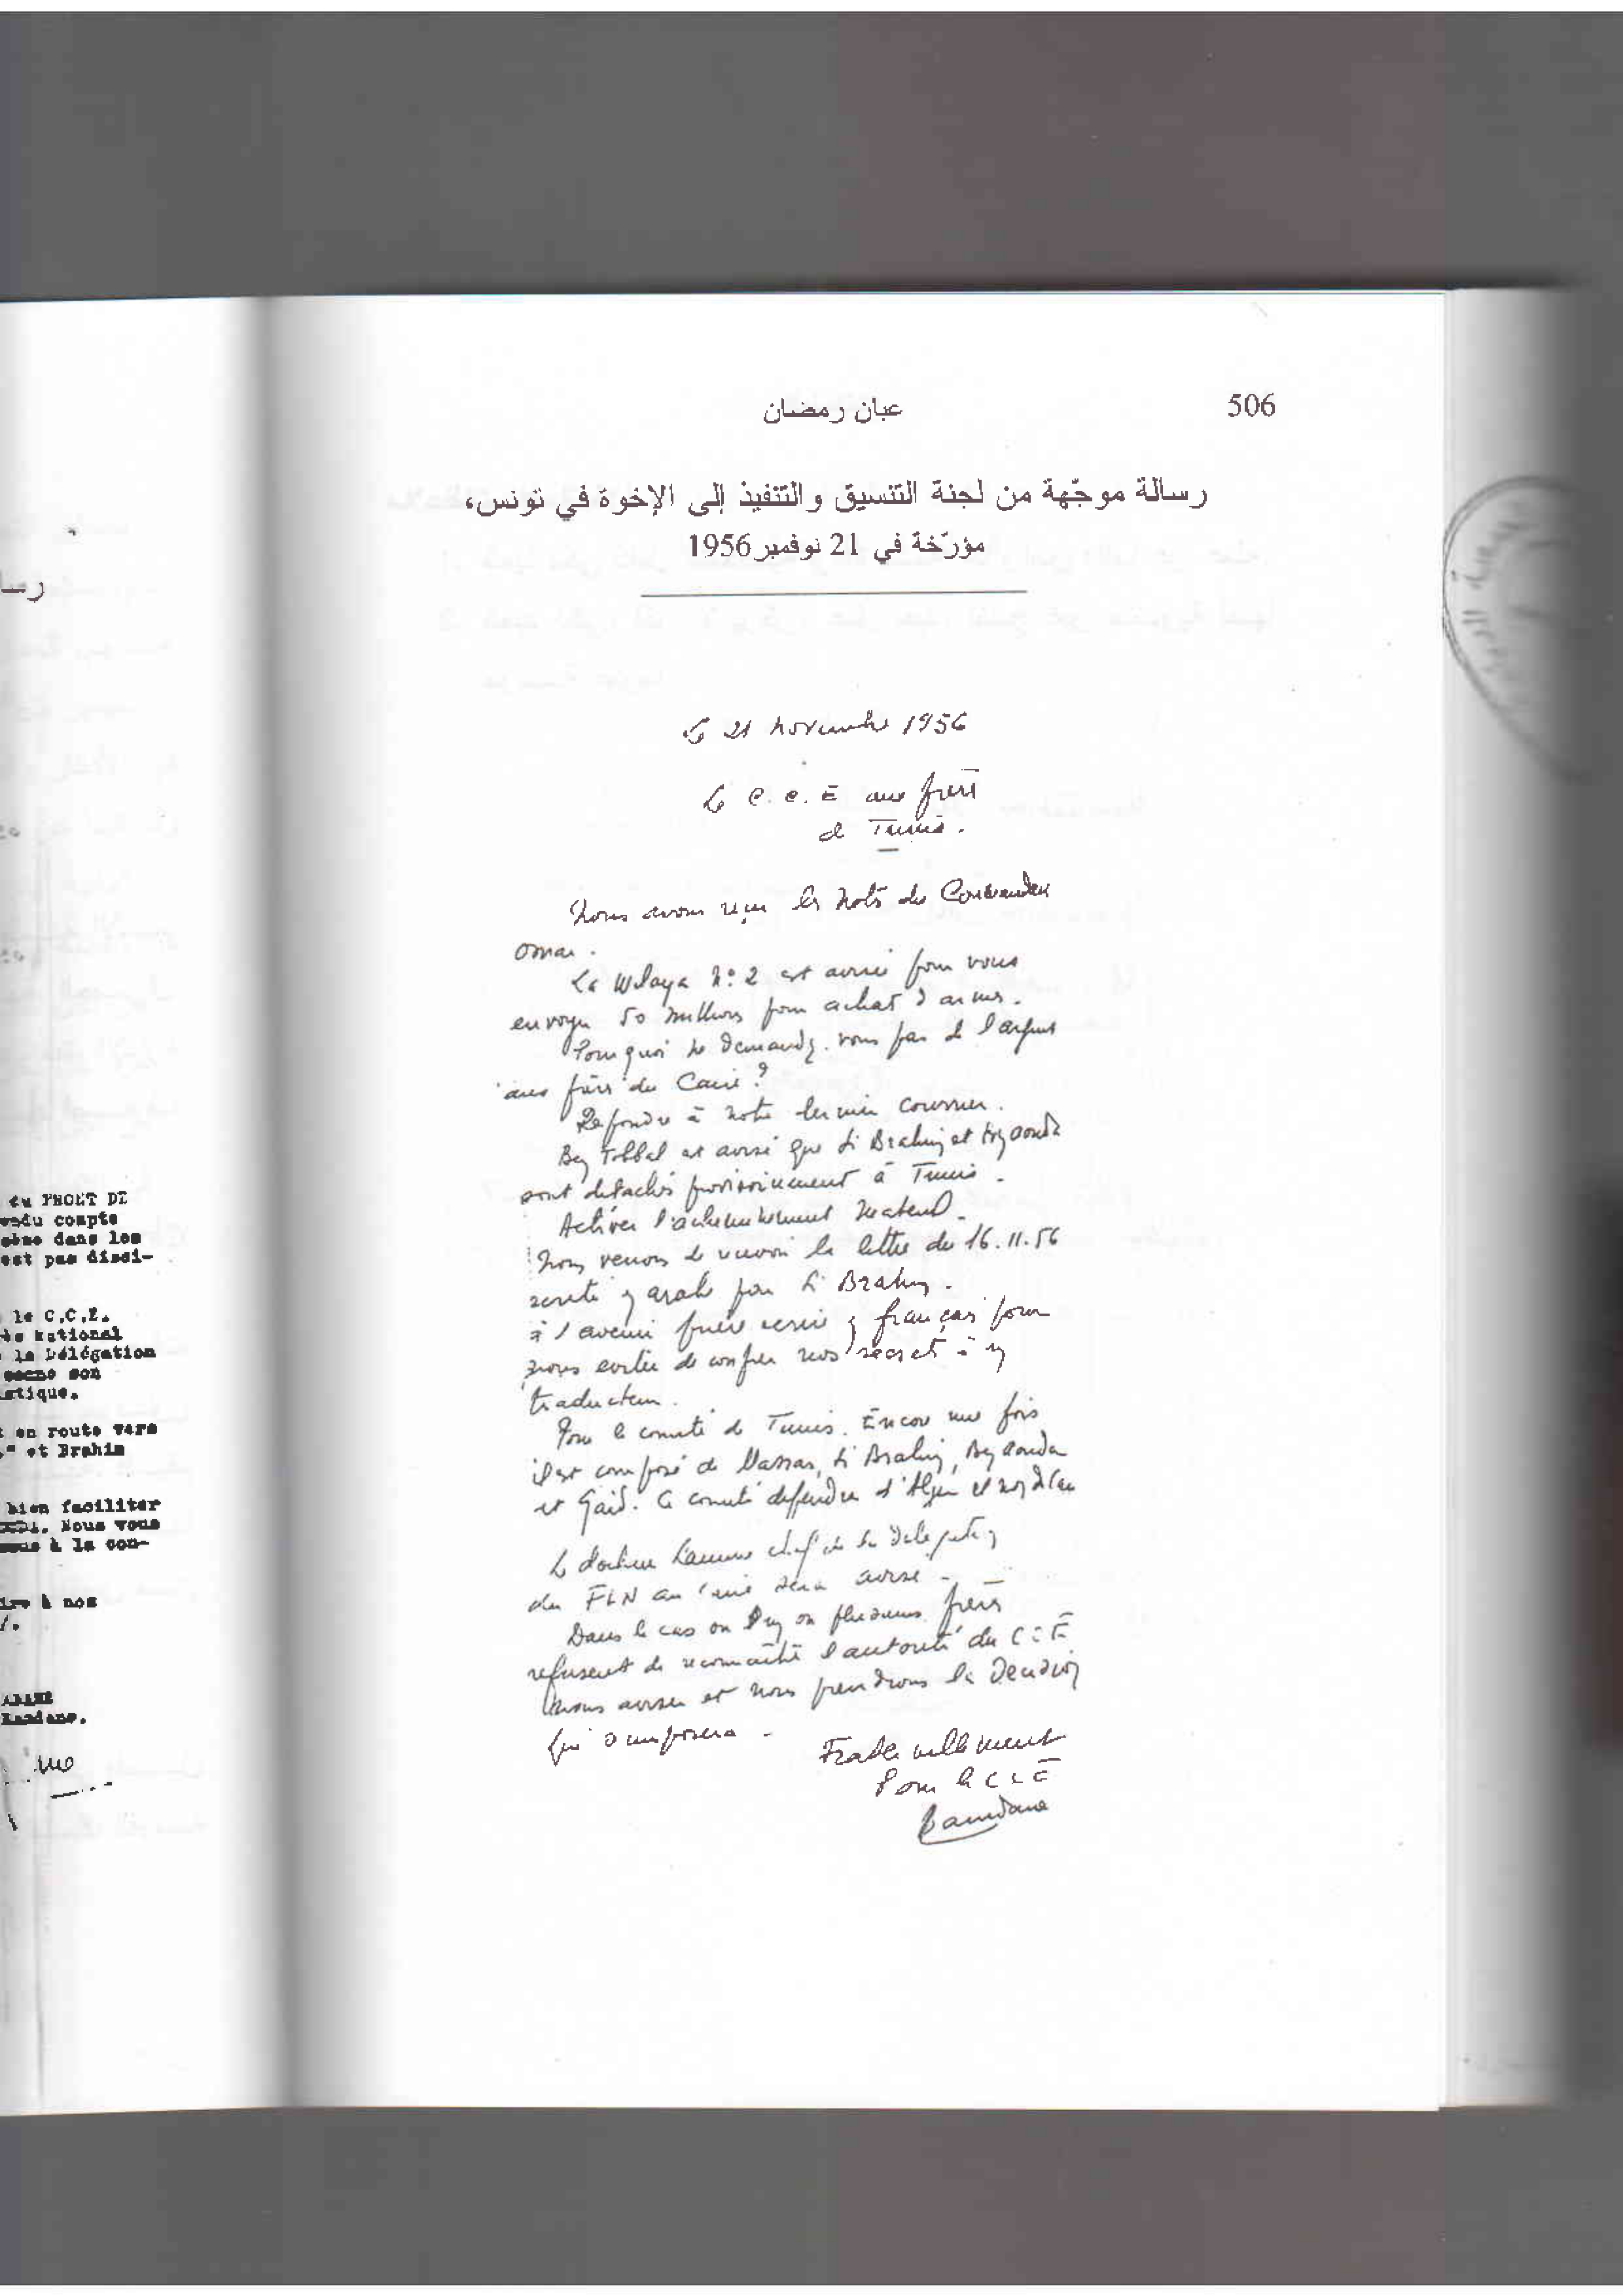 506
عبان رمضان
رسالة موجّهة من لجنة التنسيق والتنفيذ إلى الإخوة في تونس،
مؤرّخة في 21 نوفمبر 1956
Le 21 novembre 1956
Le C.C.E aux frères
de Tunis.
Nous avons reçu les notes du Commandant
Omar.
La Wilaya N° 2 est avisée pour vous
envoyer 50 millions pour achat d'armes.
Pourquoi ne demandez-vous pas de l'argent
aux frères du Caire ?
Répondre à notre dernier courrier.
Ben Tobbal est avisé que Si Brahim et Benaouda
sont détachés provisoirement à Tunis.
Activer l'acheminement matériel.
Nous venons de recevoir la lettre du 16.11.56
en arabe par Si Brahim.
à l'avenir prière écrire en français pour
nous éviter de confier nos secrets à un
traducteur.
Pour le comité de Tunis. Encore une fois
il est composé de Mahsas, Si Brahim, Benaouda
et Gaid. Ce comité dépendra d'Alger et non du Caire
Le docteur Lamine chef de la délégation
du FLN au Caire sera avisé.
Dans le cas où un ou plusieurs frères
refusent de reconnaître l'autorité du CCE
nous aviser et nous prendrons la décision
qui s'imposera.
Fraternellement
Pour le CCE
Ramdane
رسا
PROET DE
compte
dans les
est pas disci-
le C.C.E.
National
la Délégation
son
en route vers
et Brahim
bien faciliter
Nous vous
à la con-
à nos
Ramdane.